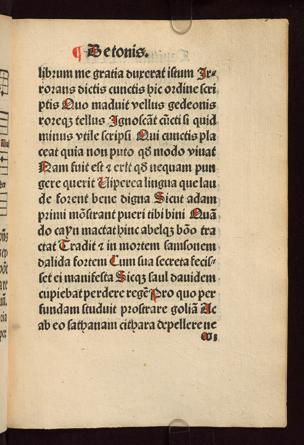 ¶ De tonis.
librum me gratia duxerat istum Ir-
rorans dictis cunctis hic ordine scri
ptis Quo maduit vellus gedeonis
roreqꝫ tellus Ignoscāt cūcti si quid
minus vtile scripsi Qui cunctis pla
ceat quia non puto qđ modo viuat
Nam fuit est ⁊ erit qđ nequam pun
gere querit Viperea lingua que lau
de forent bene digna Sicut adam
primi mōstrant pueri tibi bini Quā
do cayn mactat hinc abelqꝫ bōo tra
ctat Tradit ⁊ in mortem samsonem
dalida fortem Cum sua secreta fecis-
set ei manifesta Sicqꝫ saul dauidem
cupiebat perdere regē Pro quo per
fundam studuit prostrare goliā Ac
ab eo sathanam cithara depellere ne